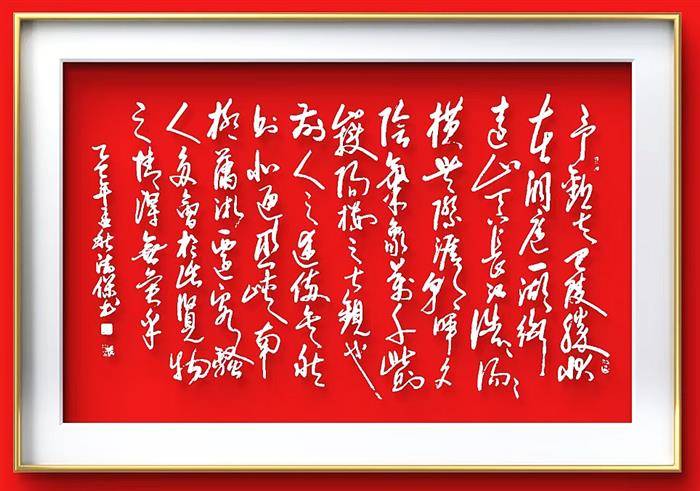 予觀夫巴陵勝狀
在洞庭一湖銜
遠山吞長江浩〻湯〻
橫無際涯朝暉夕
陰氣象萬千此則
嶽陽樓之大觀也
前人之述備矣然
則北通巫峽南
極瀟湘遷客騷
人多會於此覽物
之情得無異乎
乙巳年孟秋保书